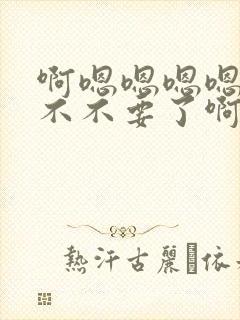 啊嗯嗯嗯嗯
不不要了啊
熱汗古麗 依